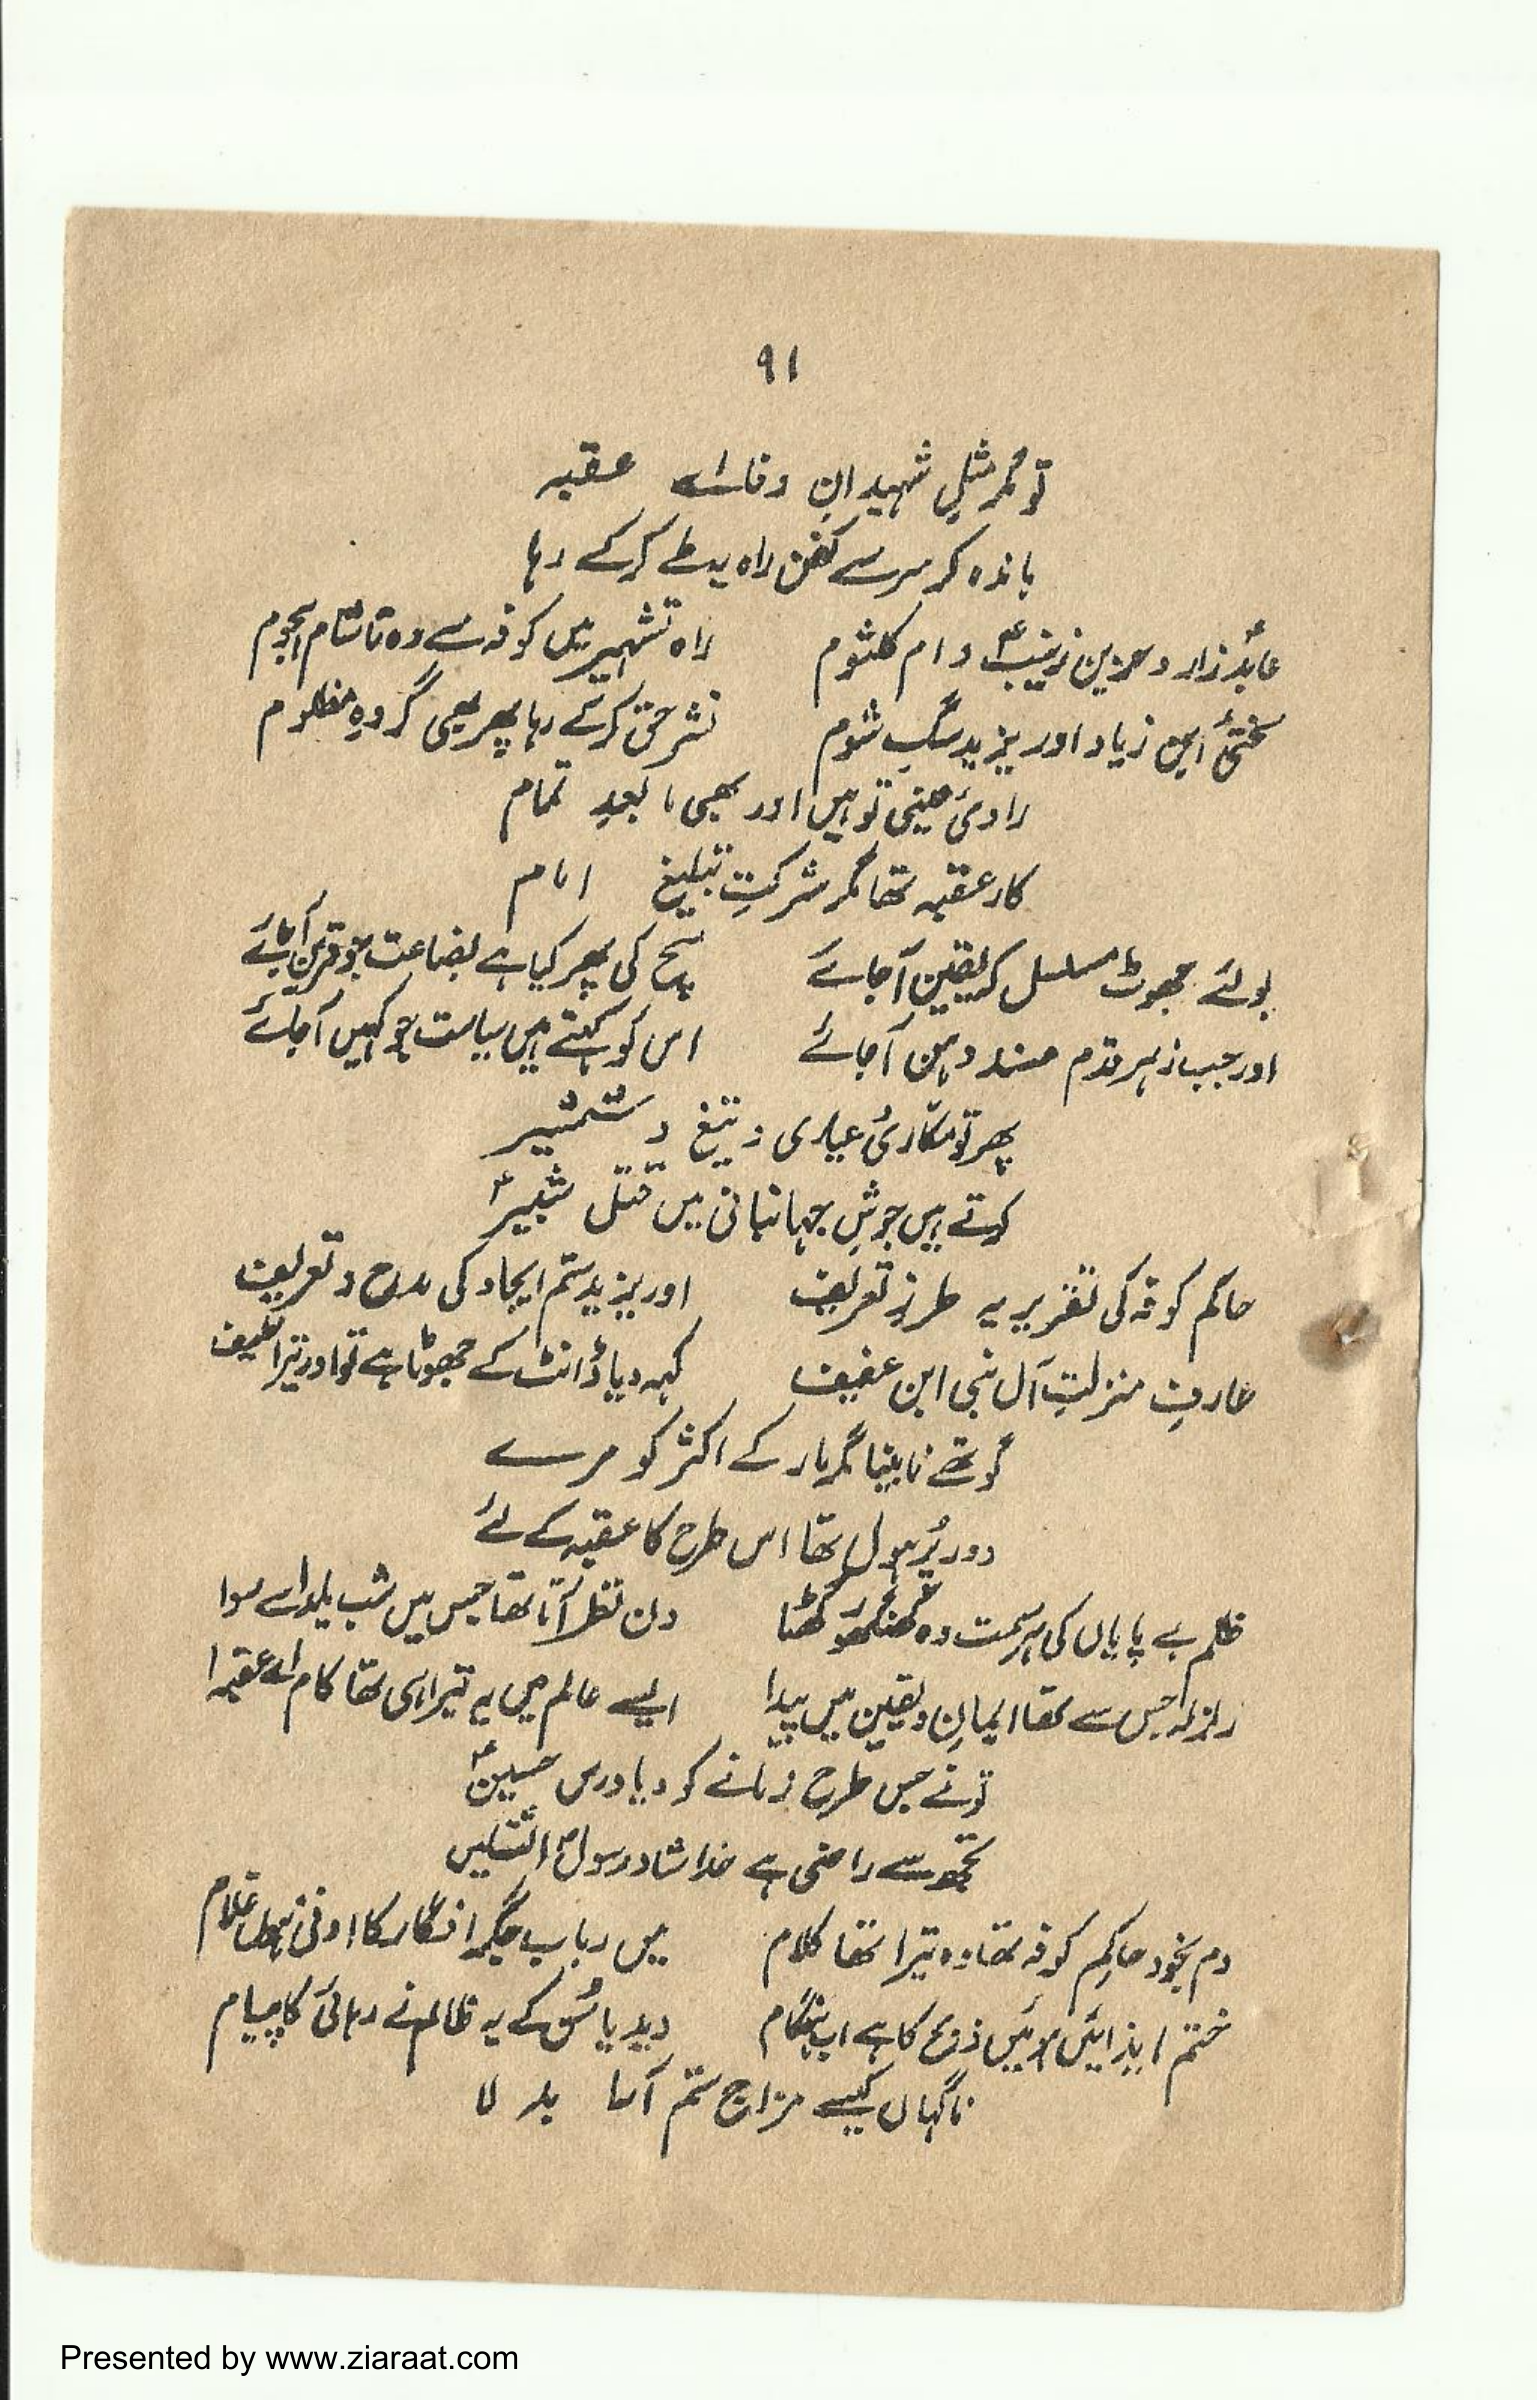 ۹۱
تو مگر مثلِ شہیدانِ وفا اے عقبہ
باندہ کر سر سے کفن راہ یہ طے کر کے رہا
عابدؑ زار و حزین زینبؑ و ام کلثوم راہ تشہیر میں کوفہ سے وہ تا شام ہجوم
سختیٔ ابن زیاد اور یزید سگِ شوم نشر حق کر کے رہا پھر بھی گروہِ مظلوم
راویٔ عینی تو ہیں اور بھی مابعدِ تمام
کار عقبہ تھا مگر شرکتِ تبلیغ امام
بولئے جھوٹ مسلسل کہ یقین آجائے سچ کی پھر کیا ہے بضاعت جو قرین آجائے
اور جب زہر قدم مسند و ہن آجائے اس کو کہتے ہیں سیاست جو کہیں آجائے
پھر تو مکّاریٔ عیاری و تیغ و شمشیر
کرتے ہیں جوشِ جہانبانی میں قتل شبیرؑ
حاکم کوفہ کی تقریر یہ طرزِ تعریف اور یزید ستم ایجاد کی مدح و تعریف
عارفِ منزلتِ آل نبی ابن عفیف کہہ دیا ڈانٹ کے جھوٹا ہے تو اور تیرا
گو تھے نابینا مگر مار کے اکثر کو مرے
دور پُر ہول تھا اس طرح کا عقبہ کے لئے
ظلم بے پایاں کی ہر سمت وہ گھنگھور گھٹا دن نظر آتا تھا جس میں شب یلدا سے سوا
زلزلہ جس سے تھا ایمان و یقین میں پیدا ایسے عالم میں یہ تیرا ہی تھا کام اے عقبہ!
تونے جس طرح زمانے کو دیا درس حسینؑ
تجھ سے راضی ہے خدا شاد رسولؐ الثقلیں
دم بخود حاکمِ کوفہ تھا وہ تیرا تھا کلام میں رباب جگر افگار کا ادنیٰ ہوں غلام
ختم ایذائیں ہوئیں ذبح کا ہے اب ہنگام دیدیا سُن کے یہ ظالم نے رہائی کا پیام
ناگہاں کیسے مزاج ستم آما بدلا
Presented by www.ziaraat.com